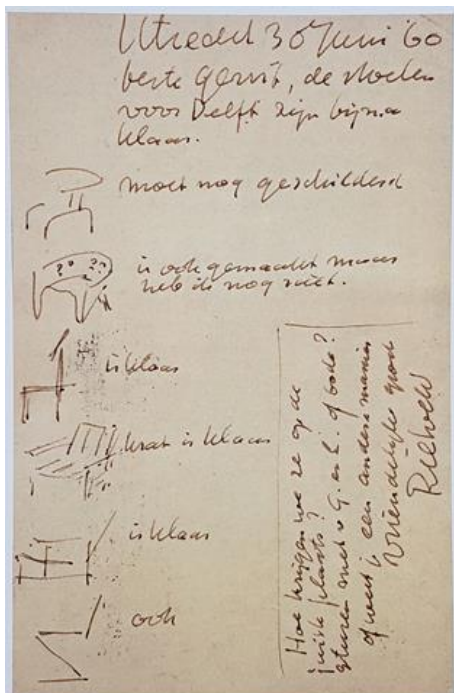 Utrecht 30 Juni '60
beste Gerrit, de stoelen
voor Delft zijn bijna
klaar.
moet nog geschilderd
is ook gemaakt maar
heb ik nog niet.
is klaar
krat is klaar
is klaar
ook
Hoe krijgen we ze op de
juiste plaats?
sturen met v G. en L. of bode?
of weet je een andere manier
vriendelijke groet
Rietveld